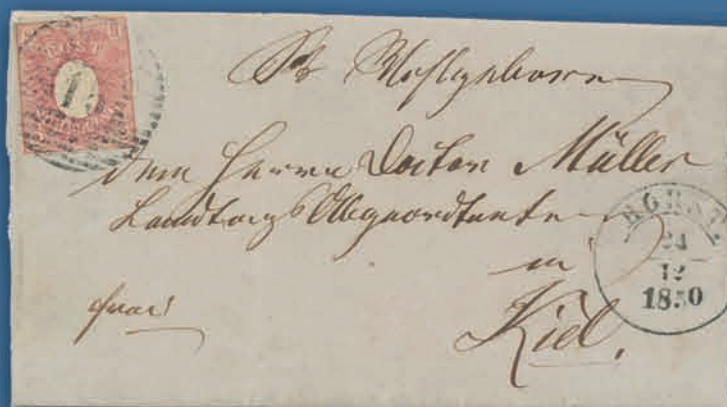 S H
POST
Sr Wohlgeboren
dem Herrn Doctor Müller
Landtags Abgeordneten
in
Kiel.
HORST
24
12
1850